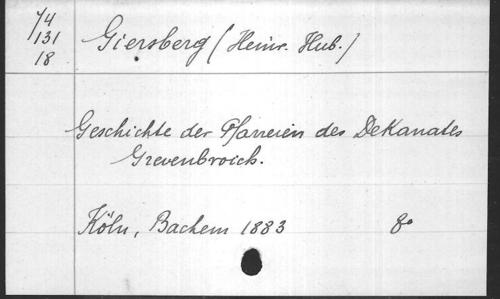 74
131
18
Giersberg (Heinr. Hub.)
Geschichte der Pfarreien des Dekanates
Grevenbroich.
Köln, Bachem 1883 8°